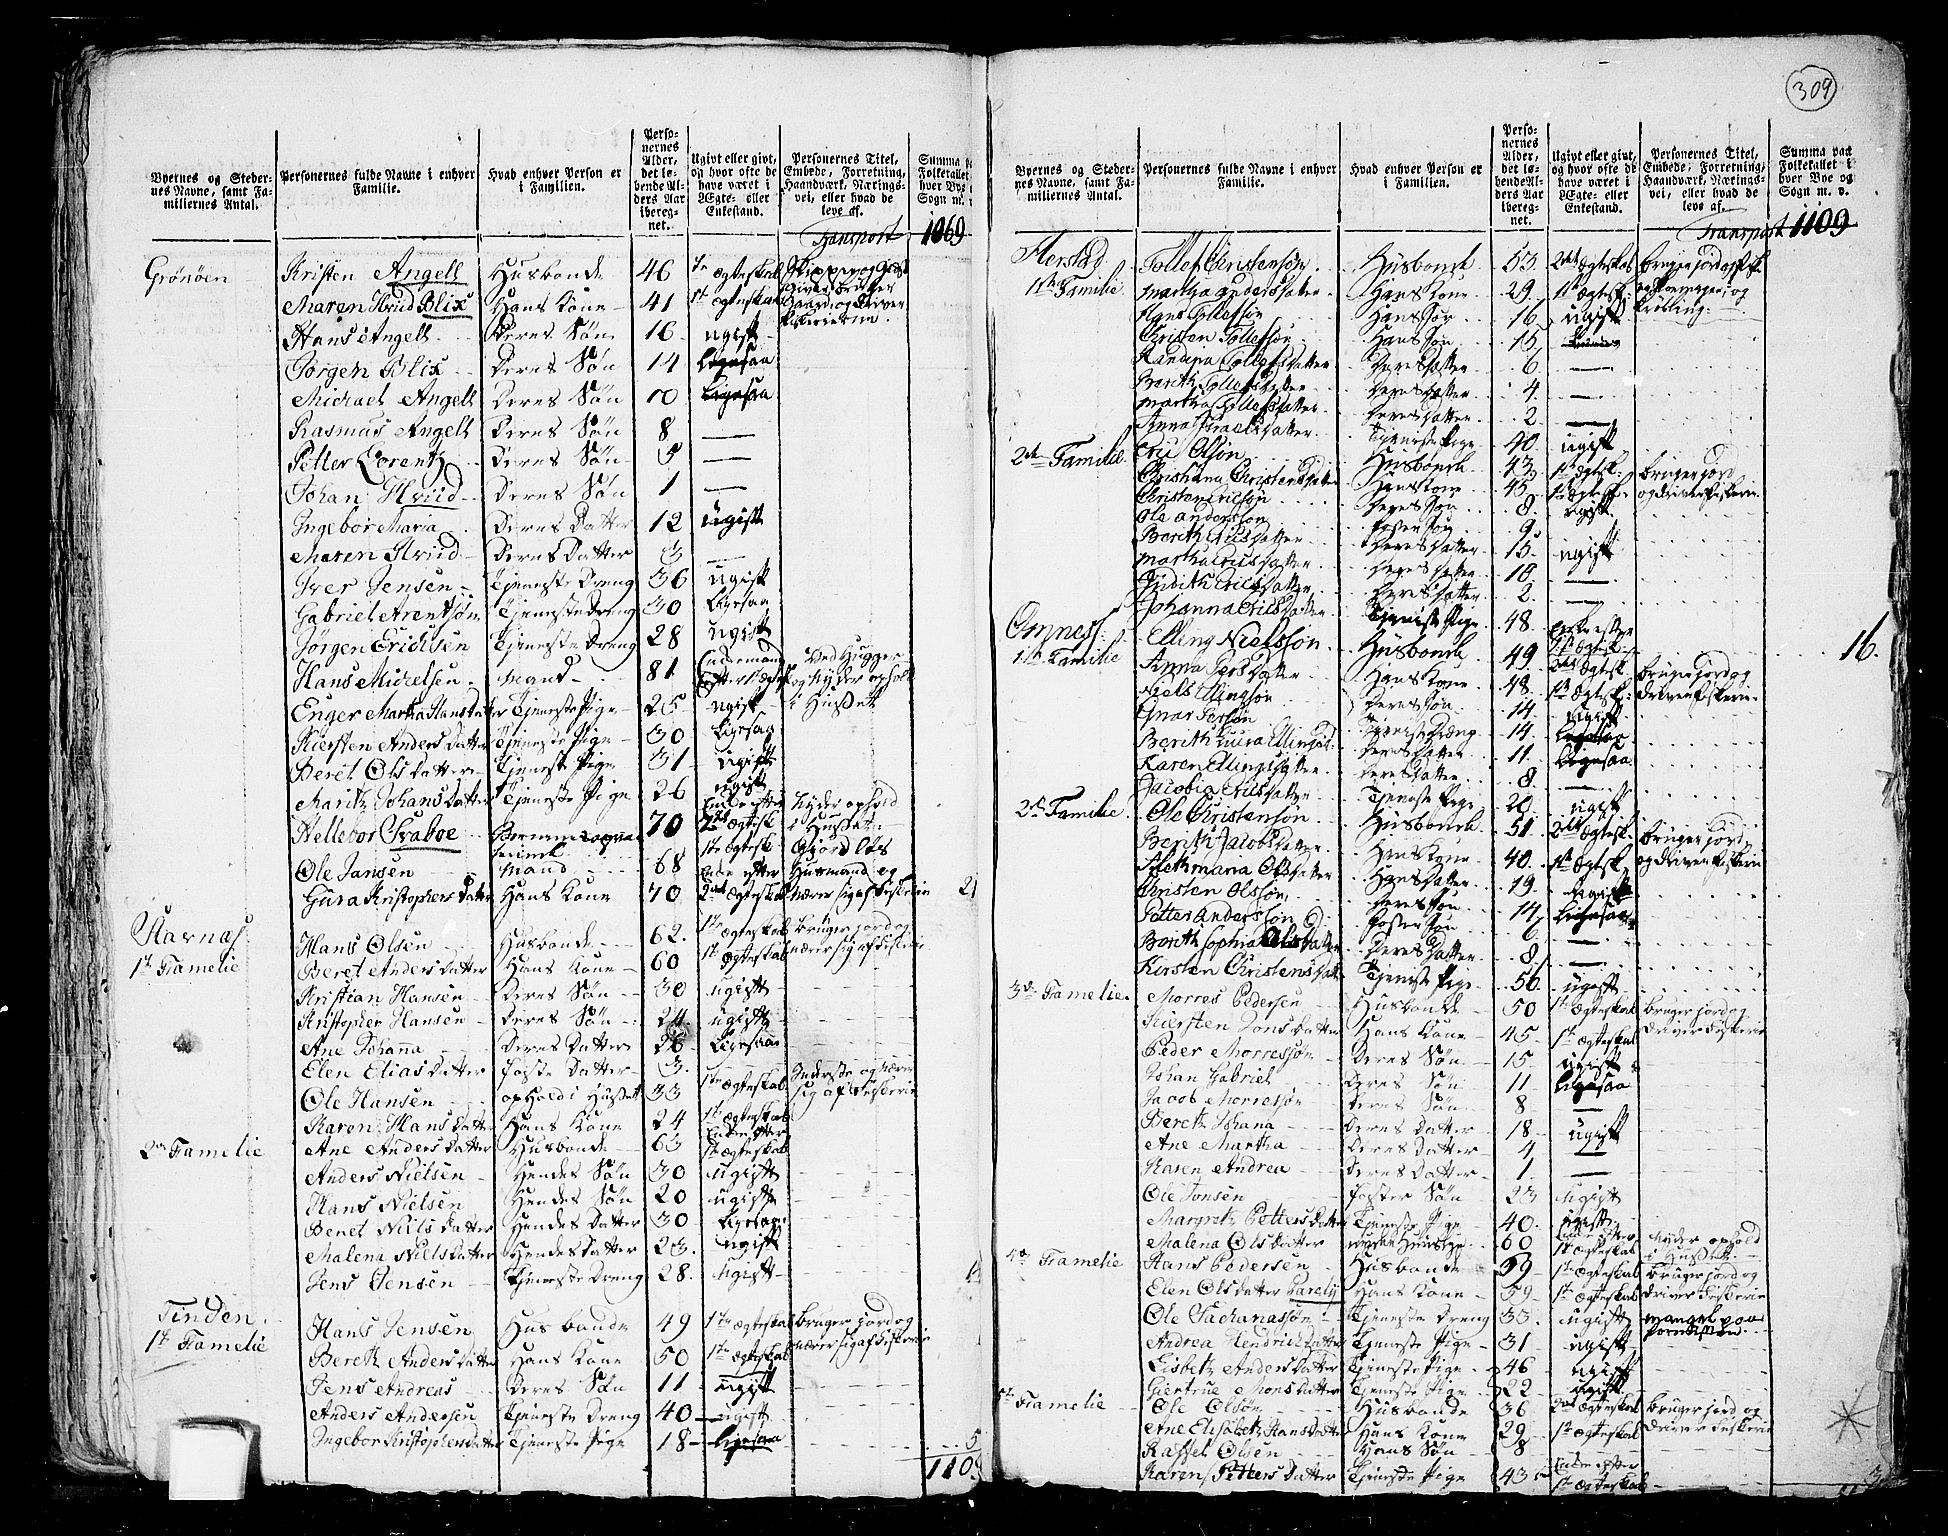 309
Byernes og Stedernes Navne, samt Familiernes Antal.
Personernes fulde Navne i enhver Familie.
Hvad enhver Person er i Familien.
Personernes Alder, det løbende Alders Aar iberegnet.
Ugivt eller givt, og hvor ofte de have været i Ægte- eller Enkestand.
Personernes Titel, Embede, Forretning, Haandværk, Næringsvei, eller hvad de leve af.
Summa paa Folketallet i hver Bye og Sogn m. v.
Transport 1069
Grönöen Kristen Angell Husbonde 46 1te ægteskab
Maren Hviid Blix Hans Kone 41 1te ægteskab
Hans Angell Deres Søn 16 ugift
Jørgen Blix Deres Søn 14 Ligesaa
Michael Angell Deres Søn 10 Ligesaa
Rasmus Angell Deres Søn 8 —
Petter Lorentz Deres Søn 5 —
Johan Hviid Deres Søn 1 —
Ingebor Maria Deres Datter 12 ugift
Maren Hviid Deres Datter 3 —
Iver Jensen Tjeneste Dreng 36 ugift
Gabriel Arentsøn Tjeneste Dreng 30 Ligesaa
Jørgen Erichsen Tjeneste Dreng 28 ugift
Hans Michelsen Mand 81 Ved Hugger og Nyder ophold i Huset
Enger Martha Hansdatter Tjeneste Pige 25 ugift
Kiersten Anders Datter Tjeneste Pige 30 Ligesaa
Beret Ols Datter Tjeneste Pige 31 ugift
Maritz Johans Datter Tjeneste Pige 26 ugift
Hellebor Graboe 70 2det ægtesk Nyder ophold i Huset
Ole Jansen Mand 68 1te ægtesk Gjordløs Husmand og
Gura Kristophers Datter Hans Kone 70 2det ægteskab Nærer sig af Fiskerie 21
Havnas
1te Famelie Hans Olsen Husbonde 62 1te ægteskab bruger jord og
Beret Anders Datter Hans Kone 60 1te ægteskab nærer sig af Fiskerie
Kristian Hansen Deres Søn 30 ugift
Kristopher Hansen Deres Søn 24 ugift
Ane Johanna Deres Datter 26 Ligesaa
Elen Elias Datter foste Datter 3
Ole Hansen ophold i Huset 33 1te ægteskab Inderste og nærer sig af Fiskerie
Karen Hans Datter Hans Kone 24 1te ægteskab
2den Famelie Ane Anders Datter Husbonde 63 Enke efter 1te ægteskab
Anders Nielsen Hendes Søn 30 ugift
Hans Nielsen Hendes Søn 20 ugift
Beret Niils Datter Hendes Datter 30 Ligesaa
Malena Niels Datter Hendes Datter 23 ugift
Jens Jensen Tjeneste Dreng 28 ugift
Tinden
1te Famelie Hans Jensen Husbonde 49 1te ægteskab bruger jord og
Bereth Anders Datter Hans Kone 50 1te ægteskab nærer sig af Fiskerie
Jens Andreas Deres Søn 11 ugift
Anders Andersen Tjeneste Dreng 40 ugift
Ingebor Kristophers Datter Tjeneste Pige 18 Ligesaa 5
1109
Byernes og Stedernes Navne, samt Familiernes Antal.
Personernes fulde Navne i enhver Familie.
Hvad enhver Person er i Familien.
Personernes Alder, det løbende Alders Aar iberegnet.
Ugivt eller givt, og hvor ofte de have været i Ægte- eller Enkestand.
Personernes Titel, Embede, Forretning, Haandværk, Næringsvei, eller hvad de leve af.
Summa paa Folketallet i hver Bye og Sogn m. v.
Transport 1109
Herstad Tollef Christensøn Husbonde 53 2det ægteskab
1te Familie Martha Andersdatter Hans Kone 29 1te ægtesk
Hans Tollefsøn Hans søn 16 ugift
Christen Tollefsøn Hans søn 15
Randina Tollefsdatter Deres datter 6 —
Berith Tollefsdatter Deres datter 4 —
Martha Tollefsdatter Deres datter 2 —
Anna Israelsdatter Tjeniste Pige 40 ugift
2den Familie Eric Olsøn Husbonde 43 1te ægtesk bruger jord
Christina Christensdatter Hans Kone 45 1te ægtesk og driver fiskerie
Christen Ericsøn Deres søn 8 ugift
Ole Andersøn Foster søn 9
Berith Erics datter Deres datter 15 ugift
Martha Ericsdatter Deres datter 10 —
Judith Ericsdatter Deres datter 2 —
Johanna Ericsdatter Tjeniste Pige 48 16
Omness
1te Familie Elling Nielssøn Husbonde 49 2det ægtesk bruger jord og
Anna Persdatter Hans Kone 48 1te ægtesk driver fiskerie
Niels Ellingsøn Deres søn 14 ugift
Gnar Persøn Tjeniste Dreng 14 Ligesaa
Berith Gura Ellingsd Deres datter 11 Ligesaa
Karen Ellingsdatter Deres datter 8
Jacobia Nilsdatter Tjeniste Pige 20 ugift
2den Familie Ole Christensøn Husbonde 51 2det ægtesk bruger jord
Berith Jacobsdatter Hans Kone 40 1te ægtesk og driver fiskerie
Aleth Maria Olsdatter Hans datter 19 ugift
Christen Olssøn Deres søn 14 Ligesaa
Petter Anderssøn Foster søn 6 —
Berith Sophia Olsdatter Deres datter 8 —
Kirsten Christensdatter Tjeniste Pige 56 ugift
3die Famelie Morres Pedersen Husbonde 50 1te ægteskab bruger jord og
Kiersten Jons Datter Hans Kone 45 1te ægteskab driver Fiskerie
Peder Morressøn Deres Søn 15 ugift
Johan Gabriel Deres Søn 11 Ligesaa
Jacob Morressøn Deres Søn 8 —
Bereth Johana Deres Datter 18 ugift
Ane Martha Deres Datter 4 —
Karen Andrea Deres Datter 1 —
Ole Jonsen foster Søn 23 ugift
Margreth Petters Datter Tjeneste Pige 40 ugift
Malena Ols Datter 60 1te ægteskab Nyder ophold i Huset
4de Famelie Hans Pedersen Husbonde 39 1te ægteskab bruger jord og
Elen Ols datter Parely Hans Kone 59 1te ægteskab driver Fiskerie
Ole Sachariassøn Tjeneste Dreng 33 ugift mangel paa
Andrea Hendrics Datter Tjeneste Pige 31 ugift
Lisbeth Anders Datter Tjeneste Pige 46 ugift
Giertrue Mons Datter Tjeneste Pige 22 ugift
5te Famelie Ole Olsøn Husbonde 36 2det ægteskab bruger jord og
Ane Elisabeth Hans Datter Hans Kone 29 1te ægteskab driver Fiskerie
Raffel Olsen Hans Søn 8
Karen Petters Datter Tjeneste Pige 43 Enke efter 1te ægteskab